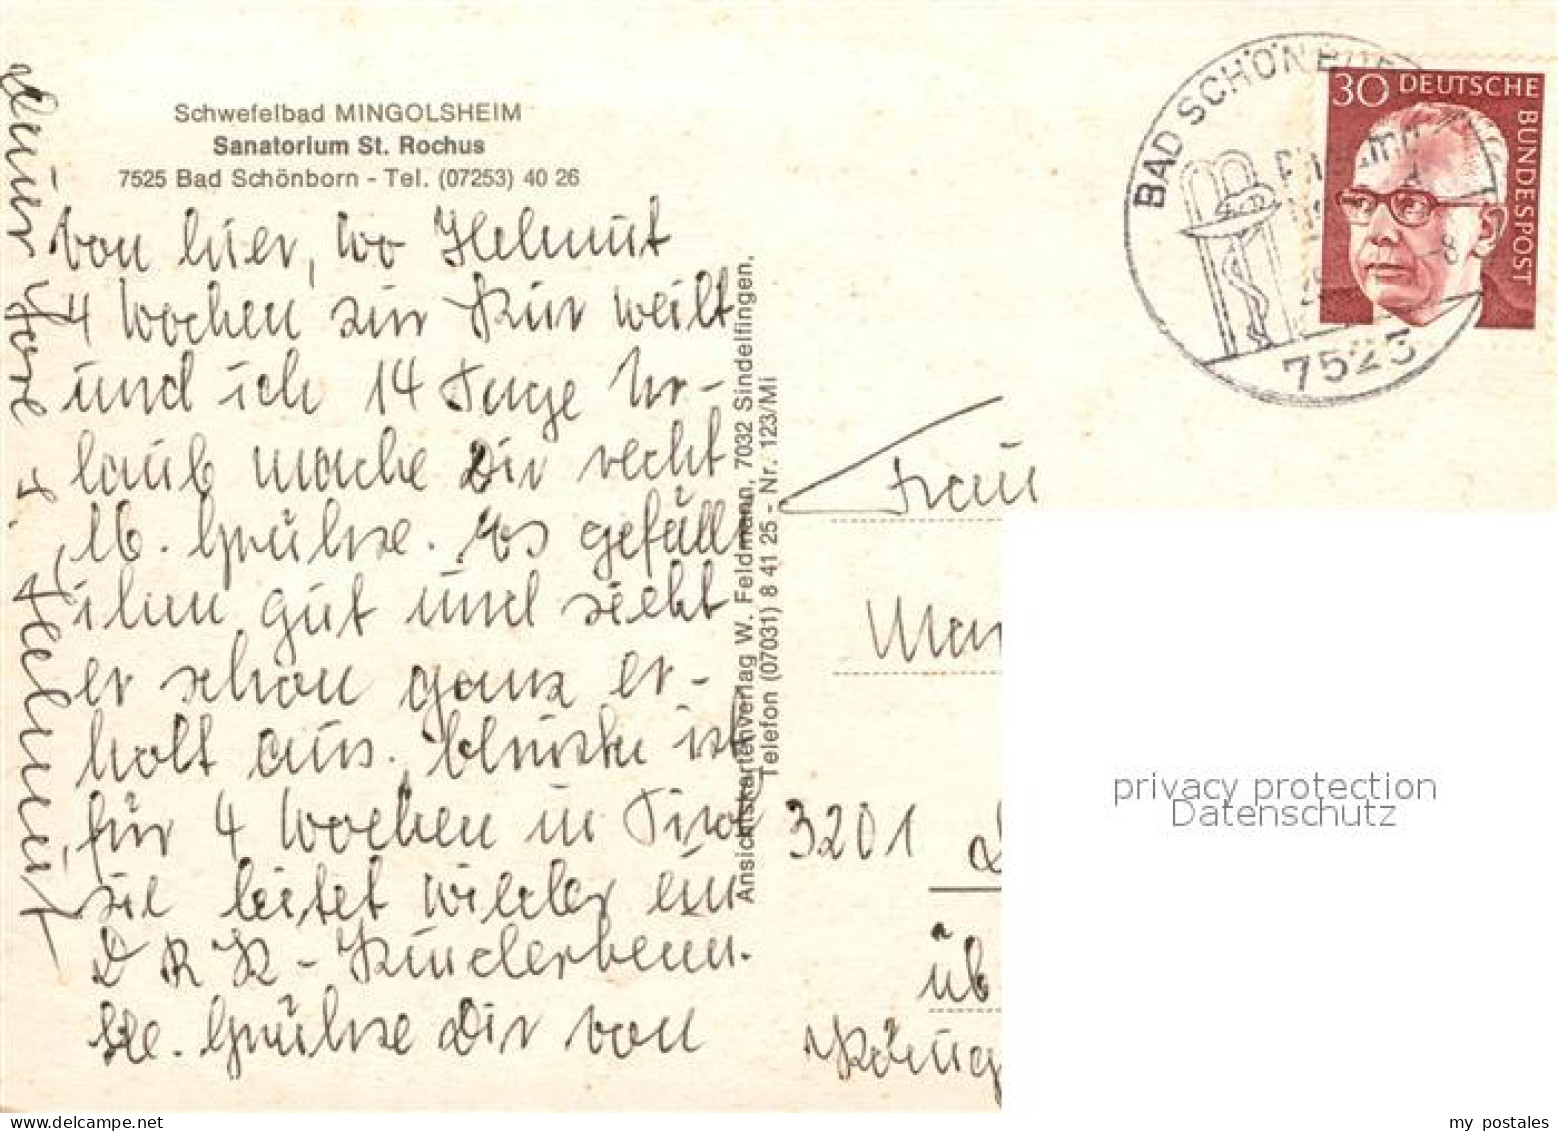 Schwefelbad MINGOLSHEIM
Sanatorium St. Rochus
7525 Bad Schönborn - Tel. (07253) 40 26
Von hier, wo Helmut
4 Wochen zur Kur weilt
und ich 14 Tage Ur-
laub mache Dir recht
lb. Grüße. Es gefällt
ihm gut und sieht
er schon ganz er-
holt aus. Christa ist
für 4 Wochen in Tirol
sie leitet wieder ein
DRK-Kinderheim.
Grüße Dir von
Deiner Lore u. Helmut
Ansichtskartenverlag W. Feldmann, 7032 Sindelfingen,
Telefon (07031) 8 41 25 - Nr. 123/Mi
BAD SCHÖNBOR
7523
30 DEUTSCHE
BUNDESPOST
Frau
3201
üb
König
privacy protection
Datenschutz
my postales